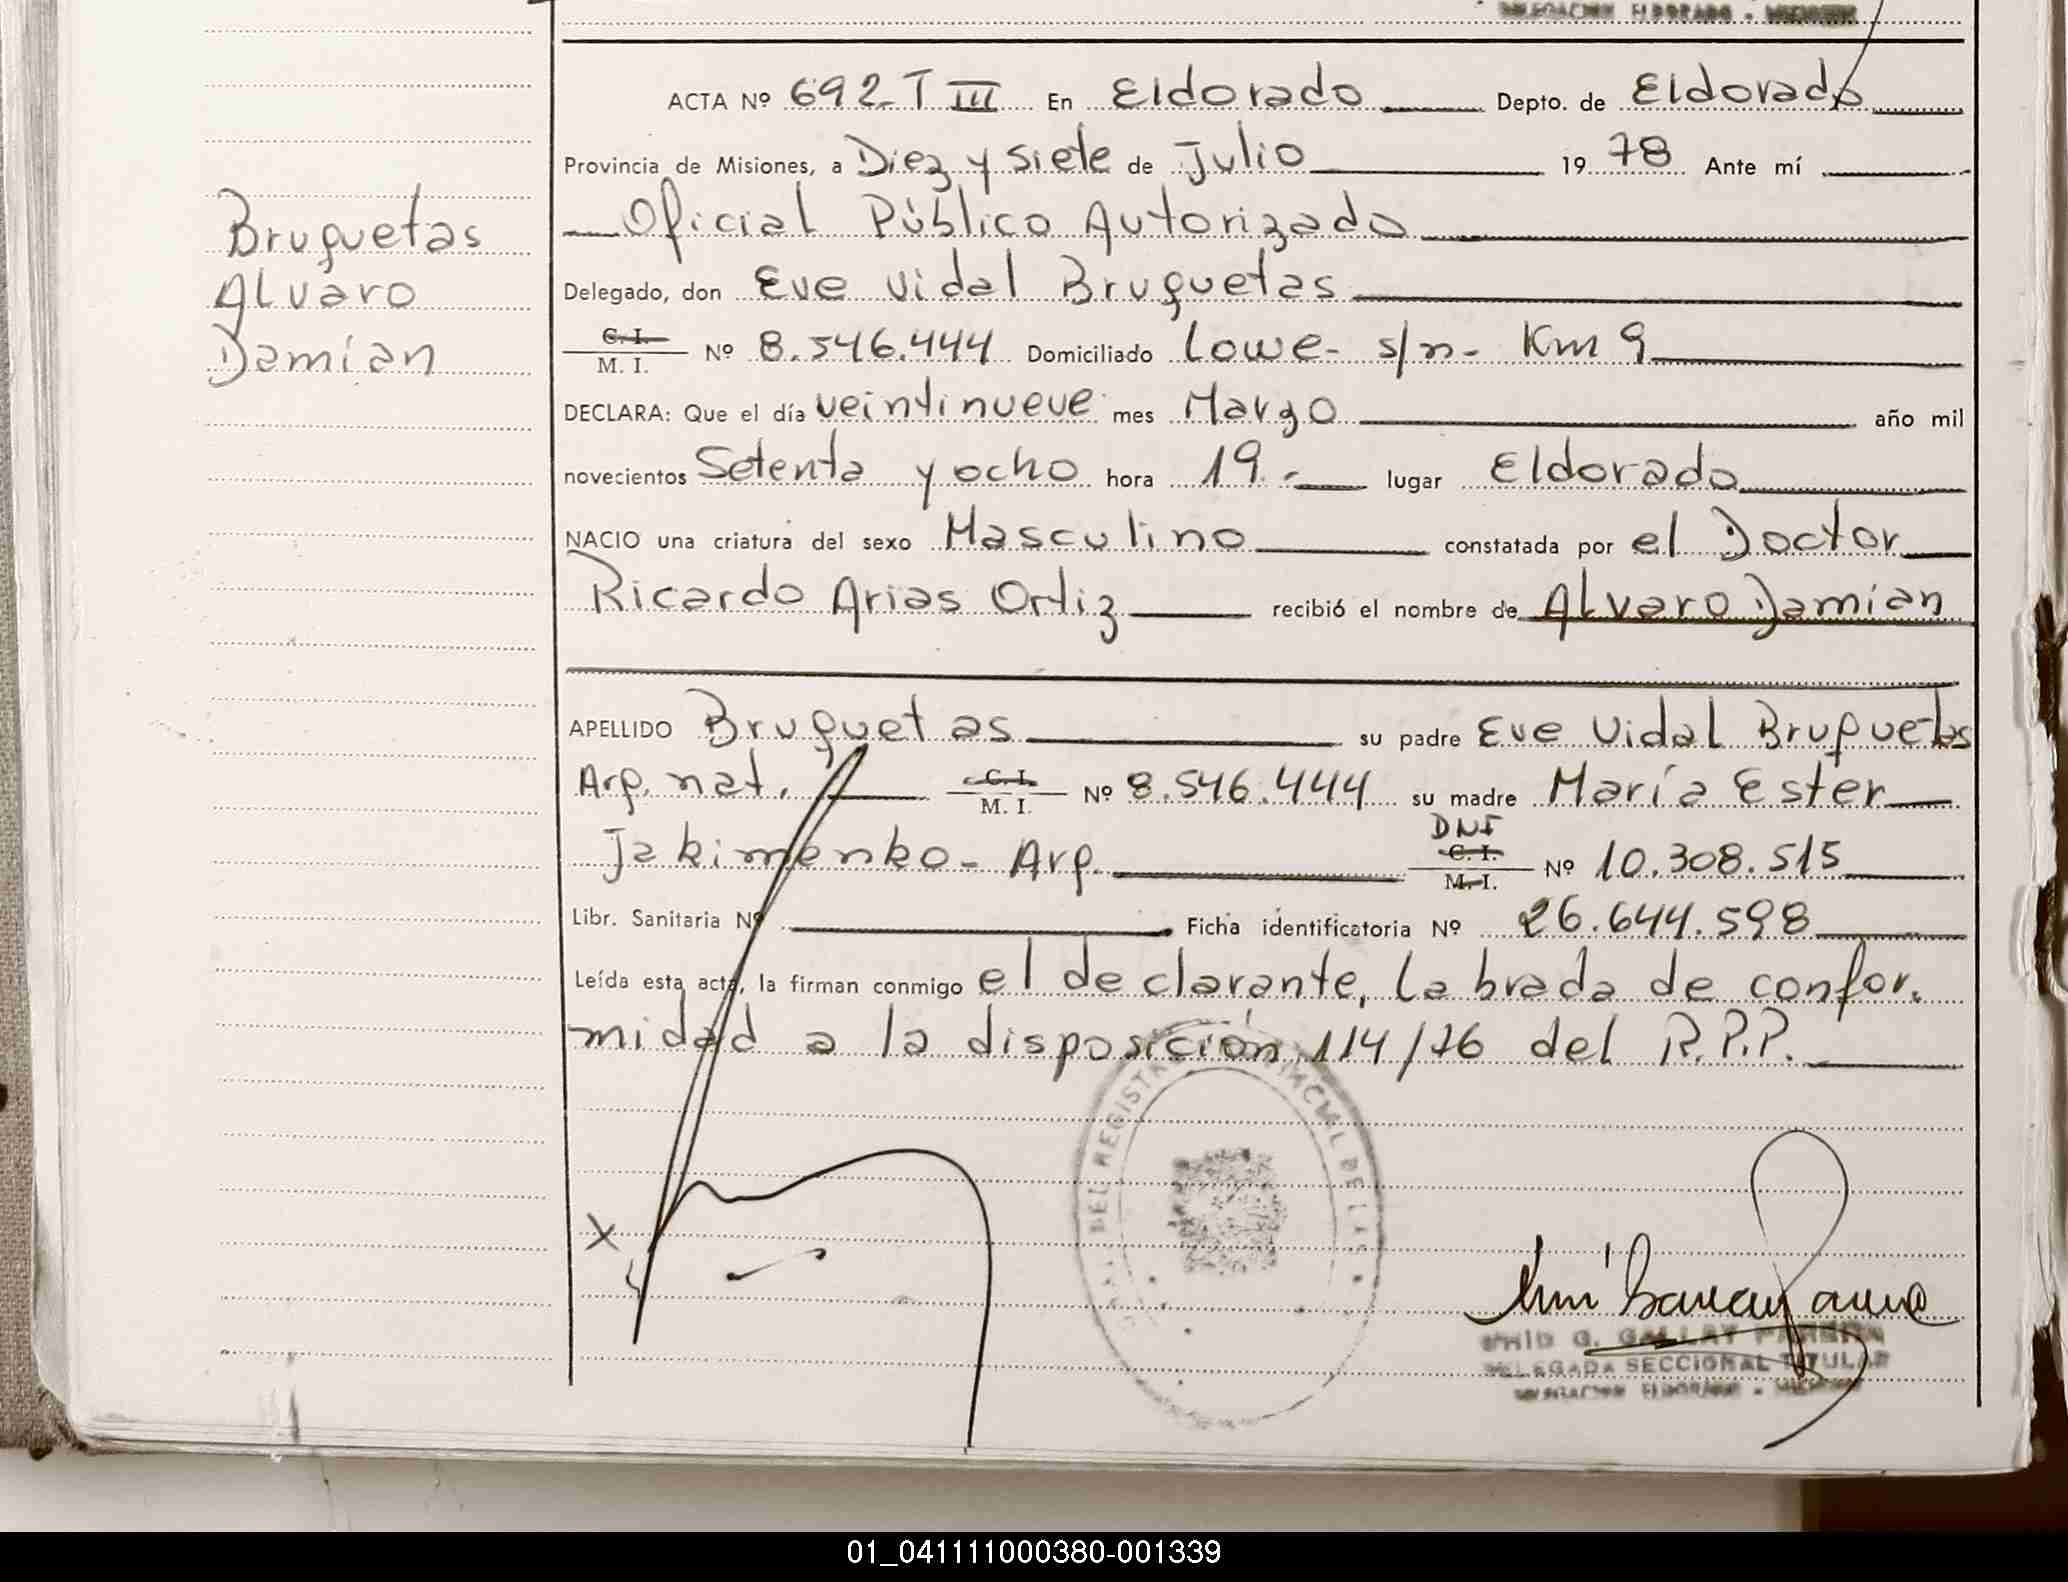 DELEGACION ELDORADO - MISIONES
ACTA Nº 692 T III En Eldorado Depto. de Eldorado
Provincia de Misiones, a Diez y Siete de Julio 19 78 Ante mí
Oficial Público Autorizado
Delegado, don Eve Vidal Bruguetas
C. I.
M. I. Nº 8.546.444 Domiciliado Lowe - s/n - Km 9
DECLARA: Que el día veintinueve mes Marzo año mil
novecientos Setenta y ocho hora 19.- lugar Eldorado
NACIO una criatura del sexo Masculino constatada por el Doctor
Ricardo Arias Ortiz recibió el nombre de Alvaro Damian
APELLIDO Bruguetas su padre Eve Vidal Bruguetas
Arg. nat. C. I. M. I. Nº 8.546.444 su madre María Ester
Jakimenko - Arg. DNI C. I. M. I. Nº 10.308.515
Libr. Sanitaria Nº Ficha identificatoria Nº 26.644.598
Leída esta acta, la firman conmigo el declarante, labrada de confor.
midad a la disposición 114/76 del R.P.P.
Bruguetas
Alvaro
Damian
X
DEL REGISTRO PROVINCIAL DE LAS
G. GALLAY
DELEGADA SECCIONAL TITULAR
DELEGACION ELDORADO - MISIONES
01_041111000380-001339